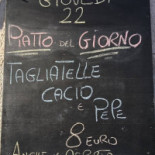 GIOVEDI
22
PIATTO DEL GIORNO
TAGLIATELLE
CACIO
E PEPE
8 EURO
ANCHE